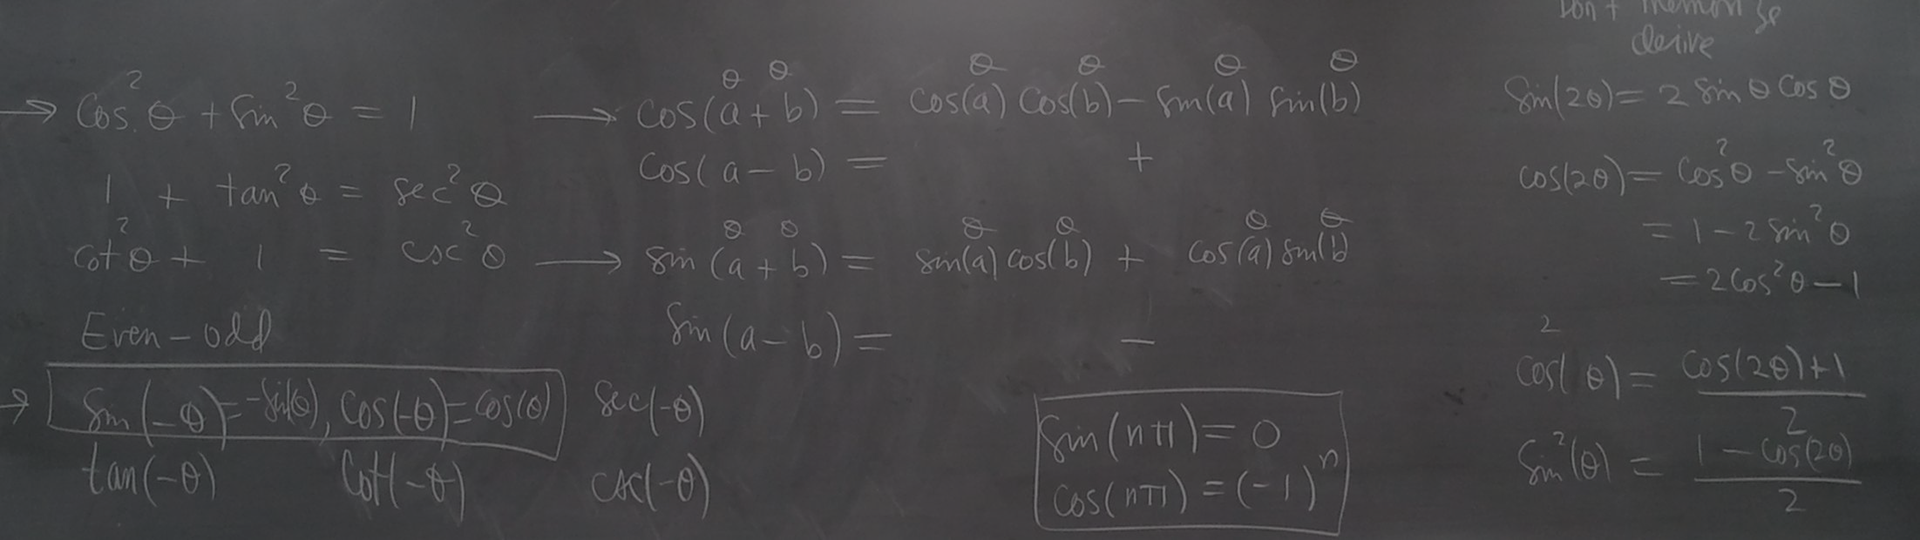 → cos²θ + sin²θ = 1
1 + tan²θ = sec²θ
cot²θ + 1 = csc²θ
Even-odd
→ sin(-θ) = -sin(θ), cos(-θ) = cos(θ) sec(-θ)
tan(-θ) cot(-θ) csc(-θ)
θ θ θ θ θ θ
→ cos(a + b) = cos(a) cos(b) - sin(a) sin(b)
cos(a - b) = +
θ θ θ θ θ θ
→ sin(a + b) = sin(a) cos(b) + cos(a) sin(b)
sin(a - b) = -
sin(nπ) = 0
cos(nπ) = (-1)ⁿ
Don't memorize
derive
sin(2θ) = 2 sin θ cos θ
cos(2θ) = cos²θ - sin²θ
= 1 - 2 sin²θ
= 2 cos²θ - 1
cos²(θ) = (cos(2θ)+1)/2
sin²(θ) = (1 - cos(2θ))/2